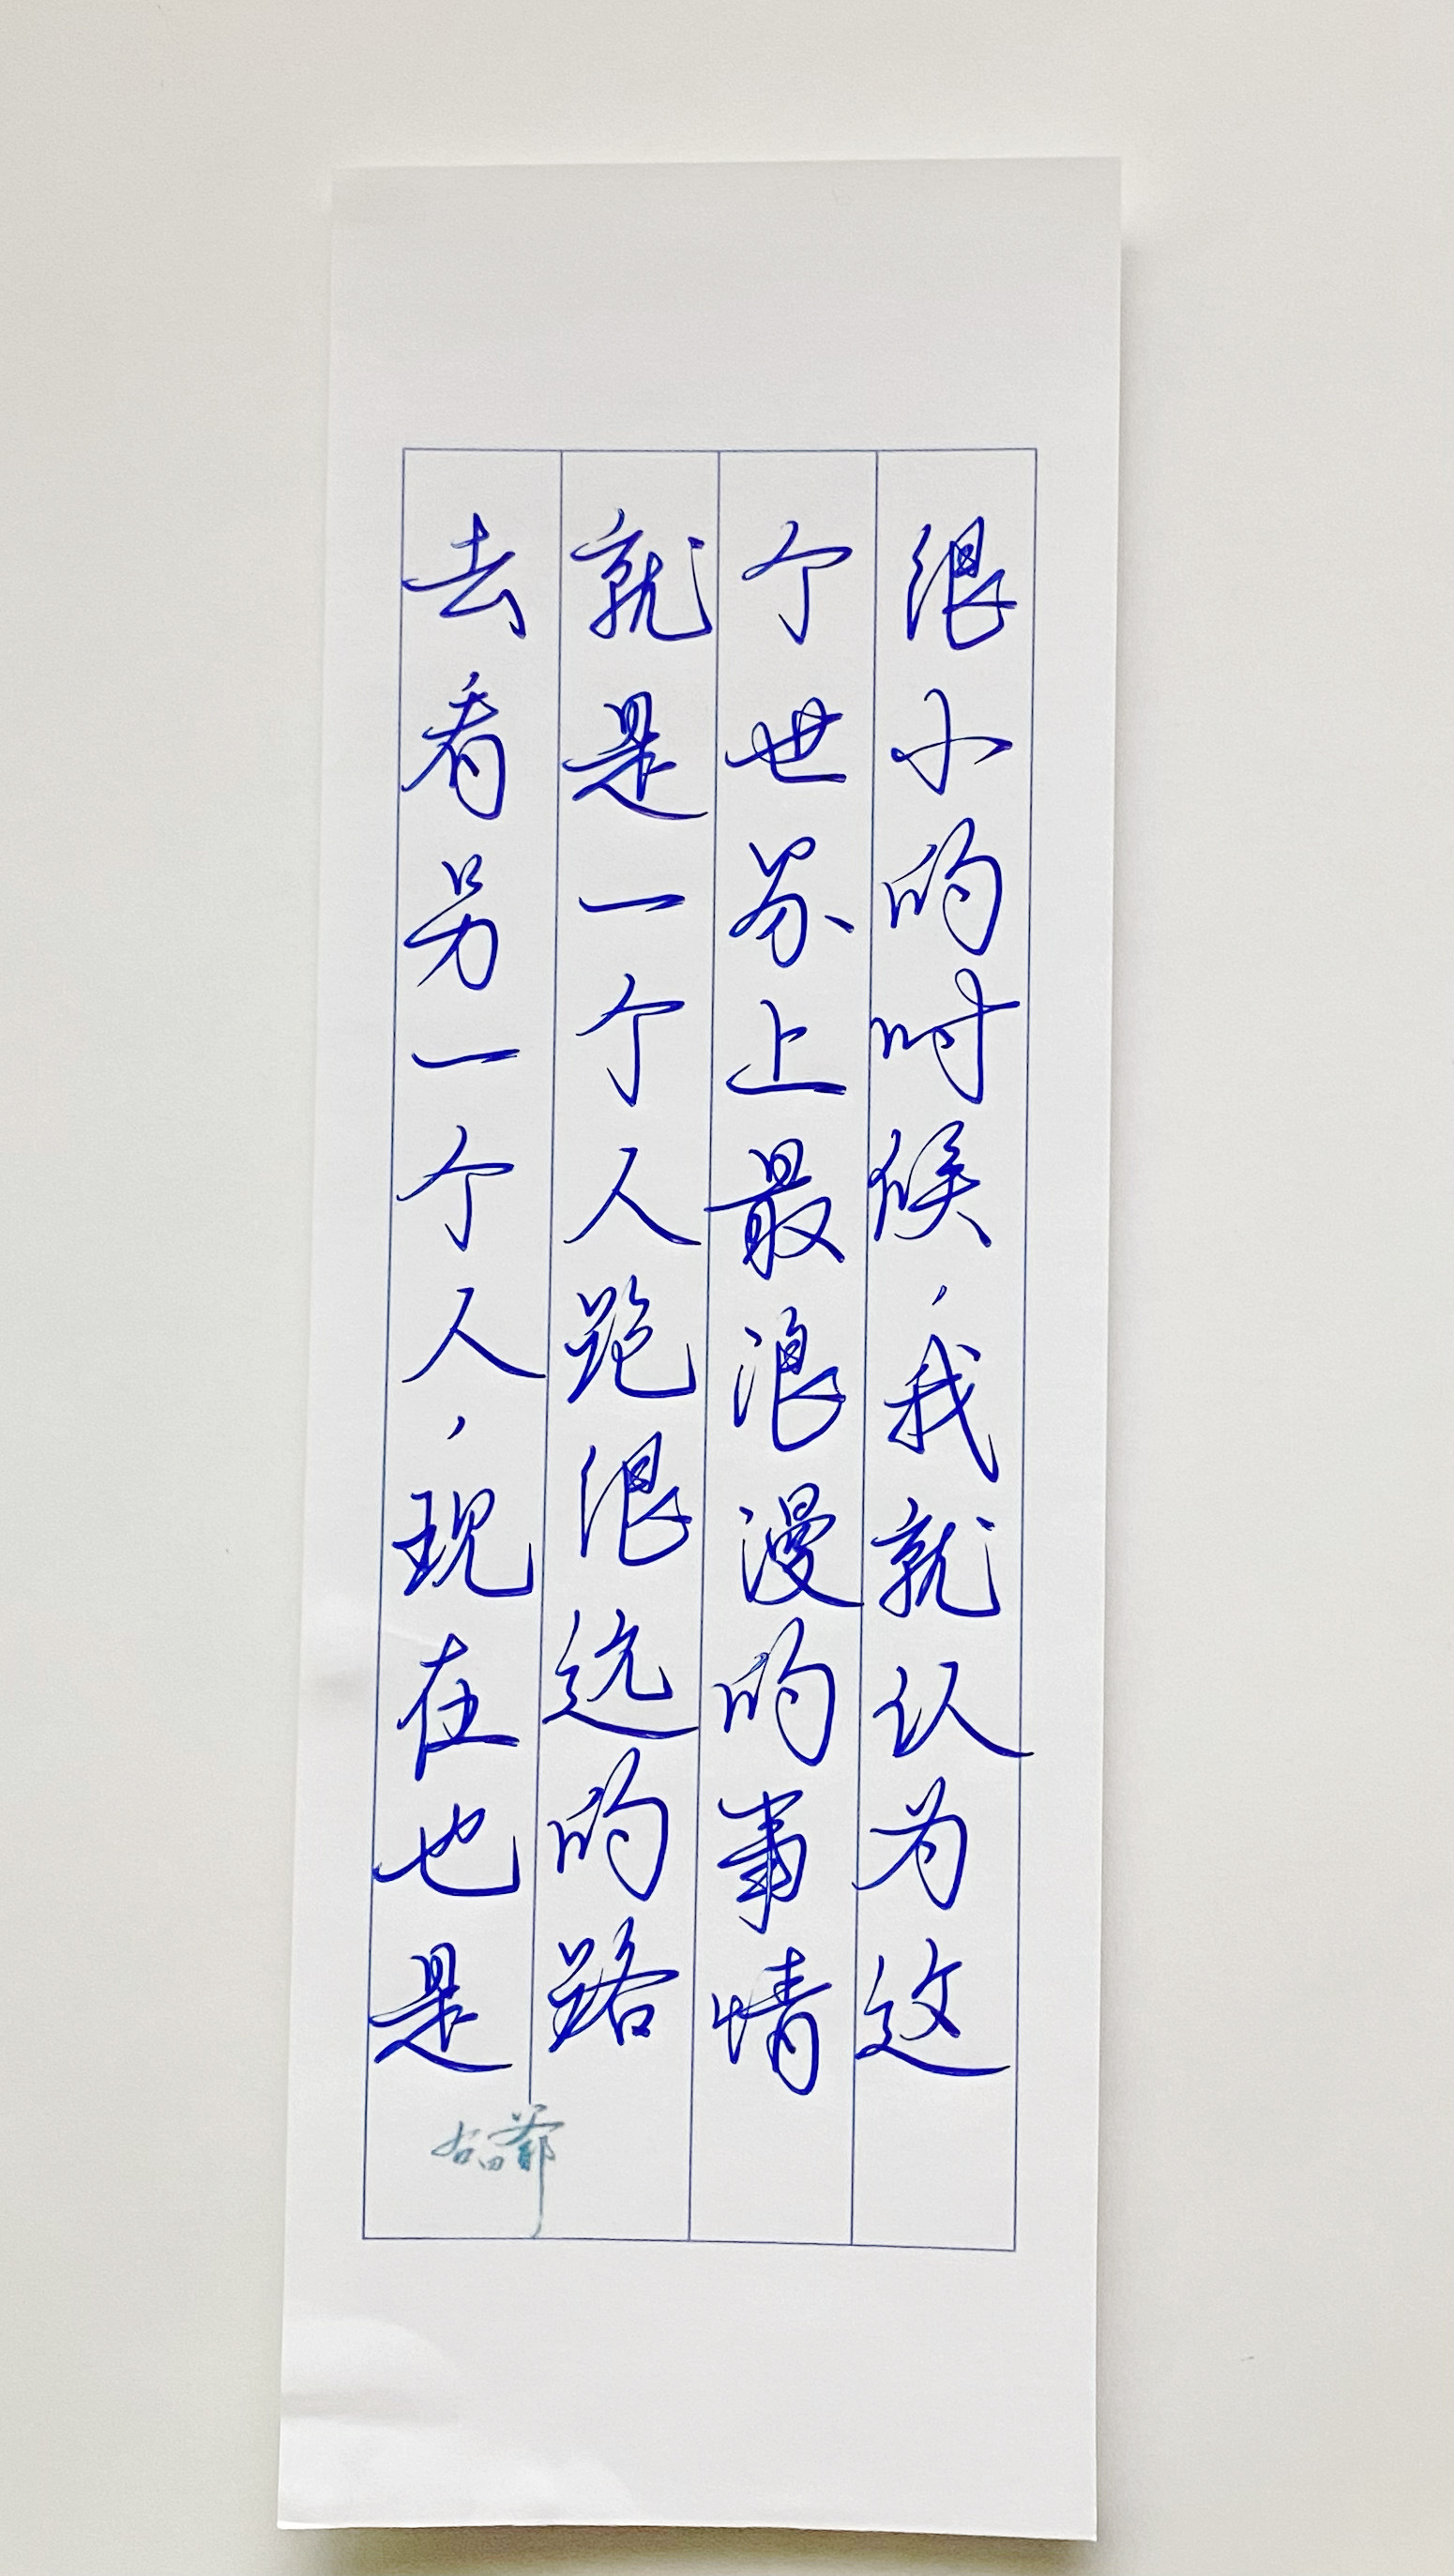 很小的时候，我就认为这
个世界上最浪漫的事情
就是一个人跑很远的路
去看另一个人，现在也是